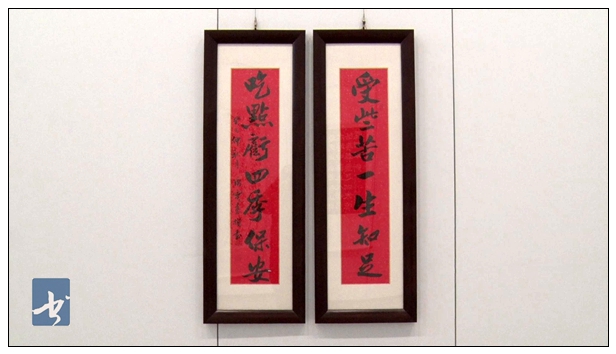 受些苦一生知足
吃點虧四季保安